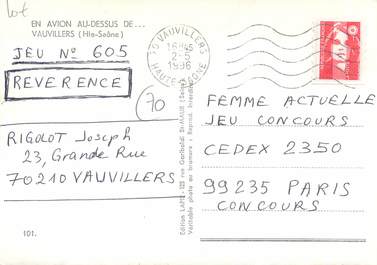 lot
EN AVION AU-DESSUS DE...
VAUVILLERS (Hte-Saône)
JEU N° 605
REVERENCE
70
RIGOLOT Joseph
23, Grande Rue
70210 VAUVILLERS
101.
70 VAUVILLERS
16H45
2-5
1996
HAUTE SAONE
Edition LAPIE - 125 rue Garibaldi St-MAUR (Seine)
Véritable photo au bromure - Reprod. Interdite
FEMME ACTUELLE
JEU CONCOURS
CEDEX 2350
99235 PARIS
CONCOURS